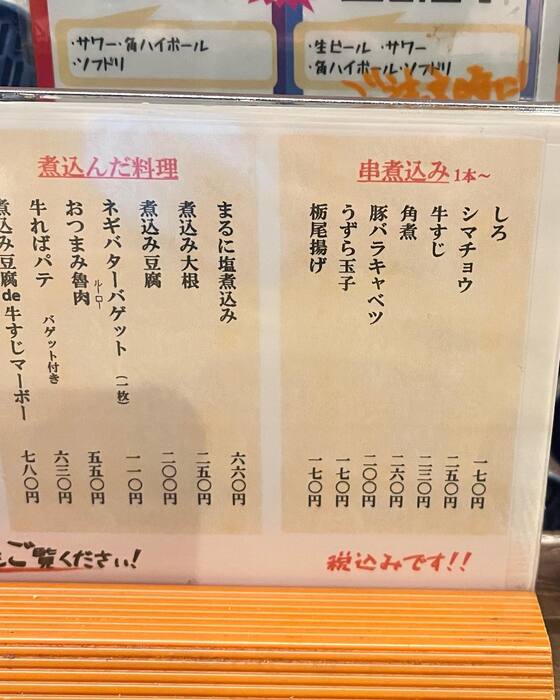 ・サワー・角ハイボール
・ソフドリ
・生ビール ・サワー
・角ハイボール・ソフドリ
串煮込み 1本~
しろ 一七〇円
シマチョウ 二五〇円
牛すじ 二三〇円
角煮 二六〇円
豚バラキャベツ 二〇〇円
うずら玉子 一七〇円
栃尾揚げ 一七〇円
煮込んだ料理
まるに塩煮込み 六六〇円
煮込み大根 二五〇円
煮込み豆腐 二〇〇円
ネギバターバゲット (一枚) 一一〇円
おつまみ魯肉 ルーロー 五五〇円
牛ればパテ バゲット付き 六三〇円
煮込み豆腐de牛すじマーボー 七八〇円
ご覧ください!
税込みです!!